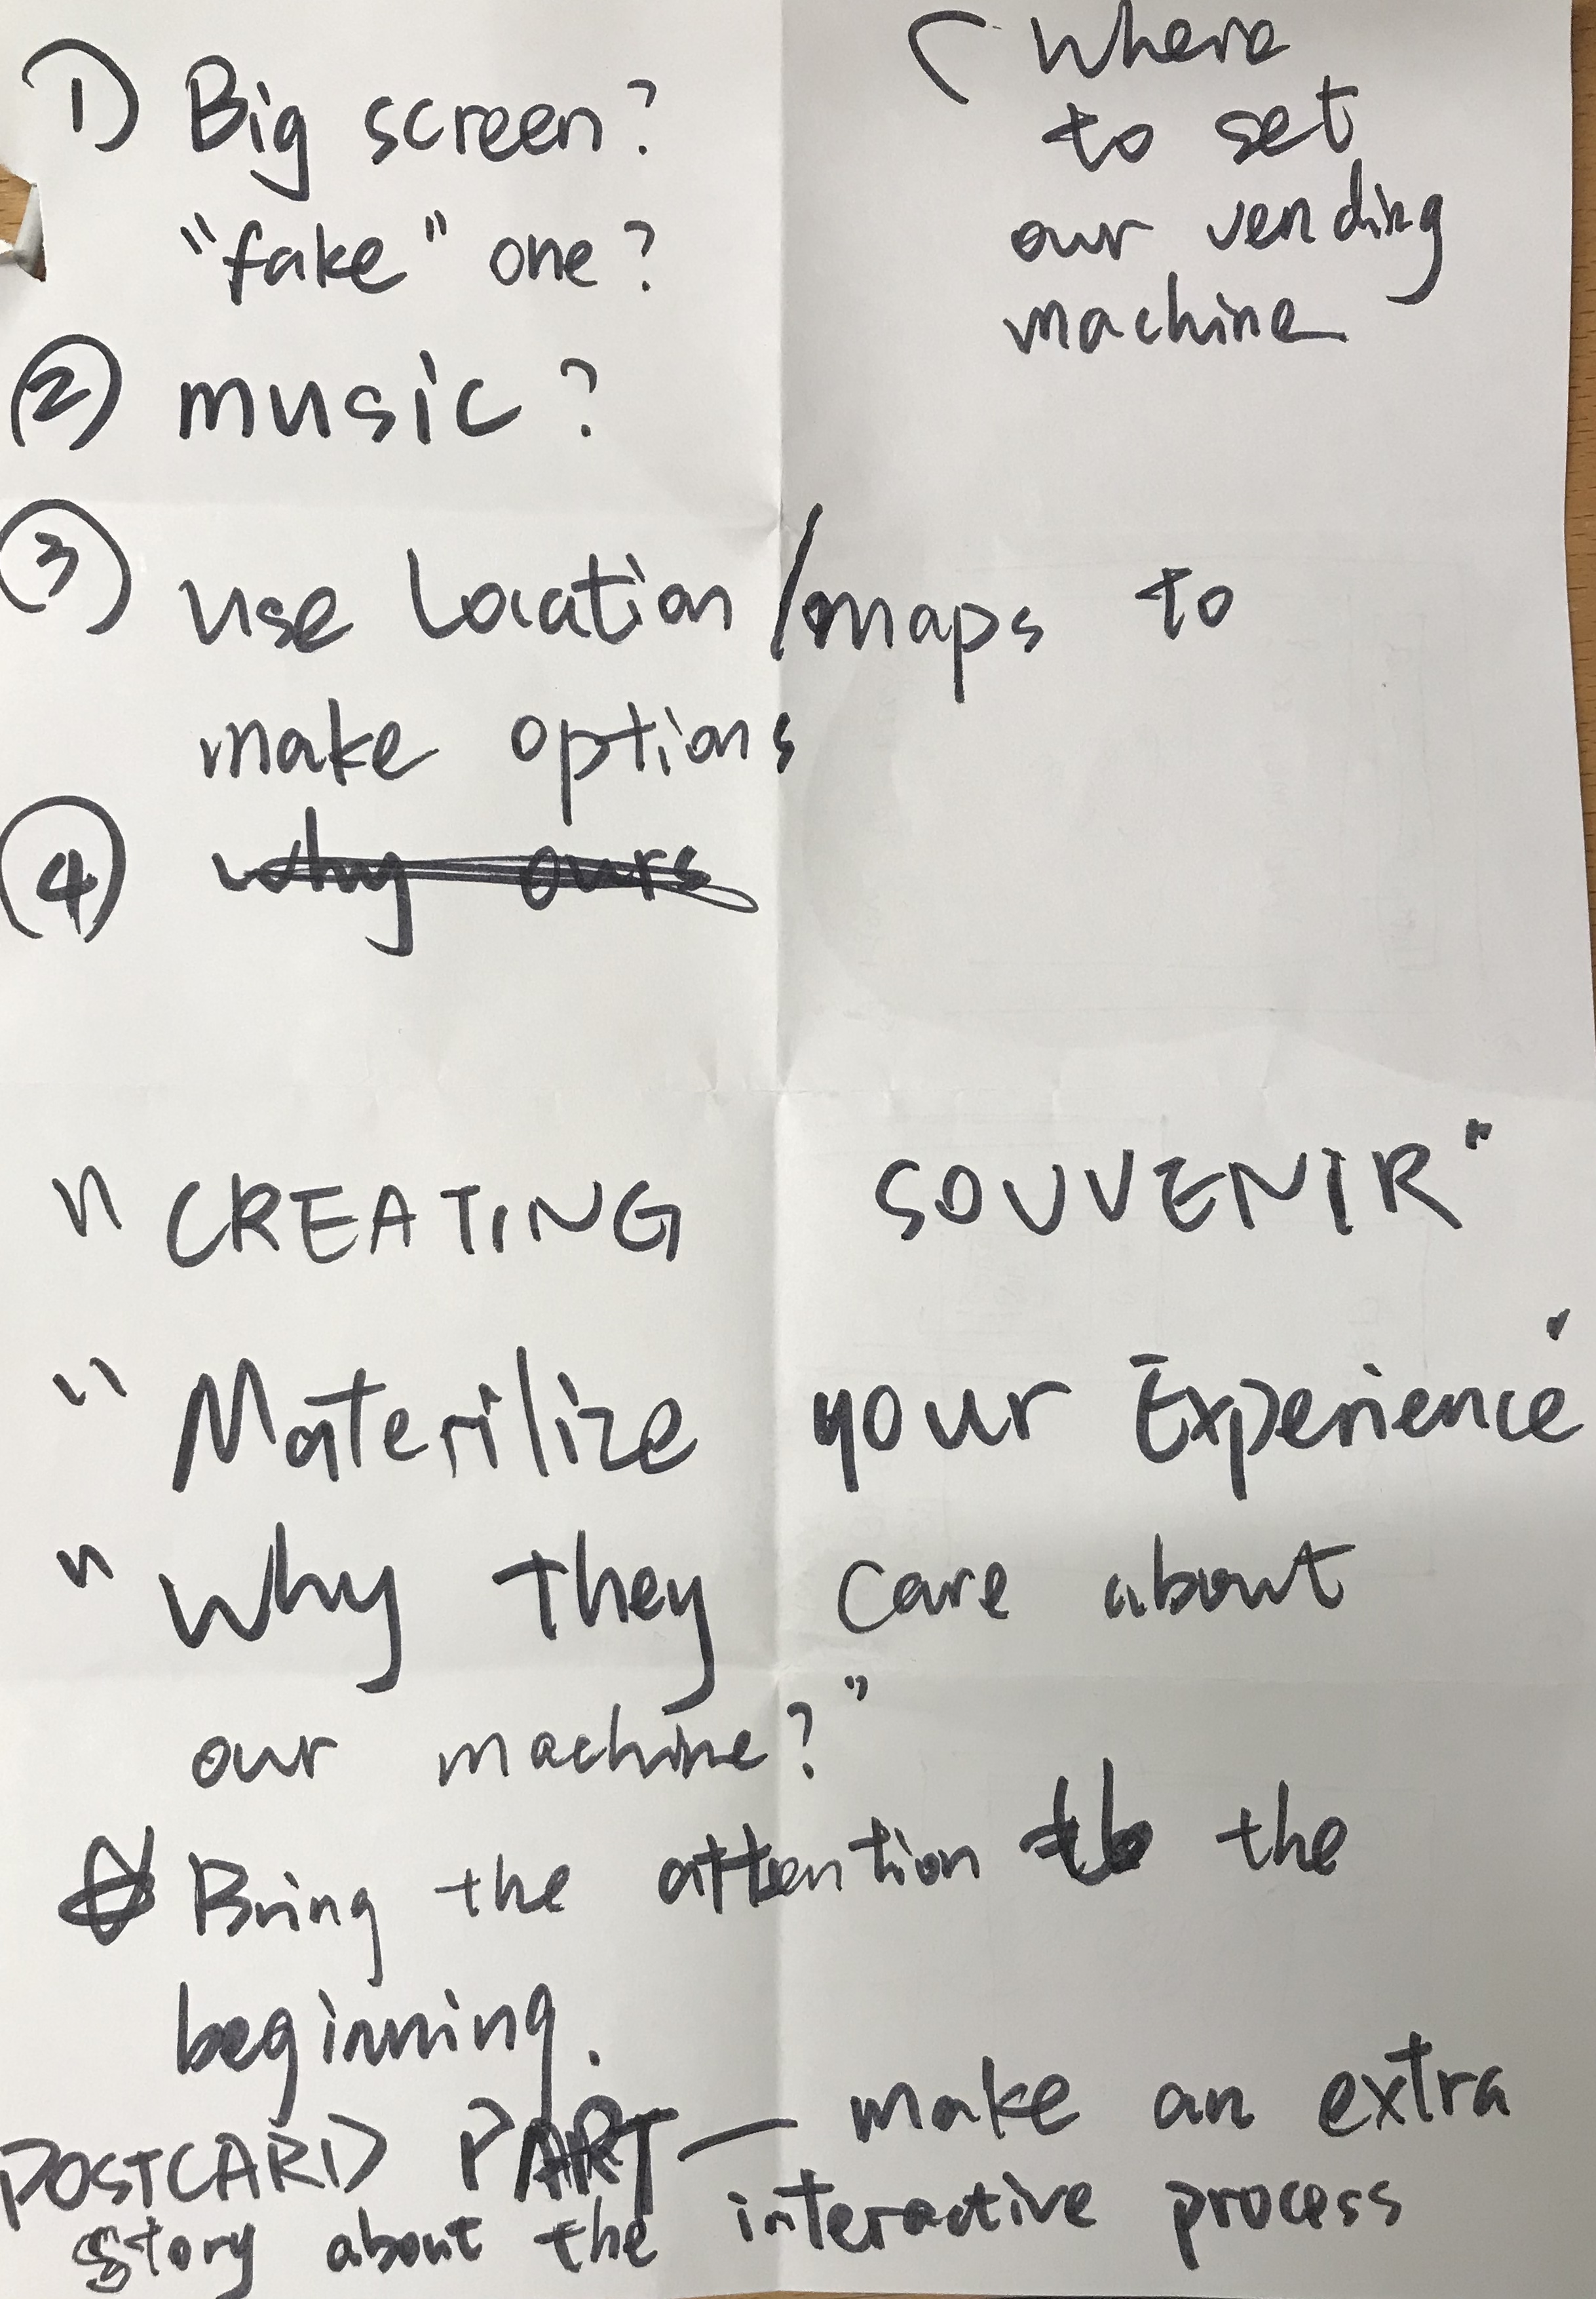 ① Big screen?
"fake" one?
( Where
to set
our vending
machine
② music?
③ use Location/maps to
make options
④ why ours
"CREATING SOUVENIR"
"Materilize your Experience"
"Why they care about
our machine?"
☆ Bring the attention to the
beginning.
POSTCARD PART — make an extra
story about the interactive process